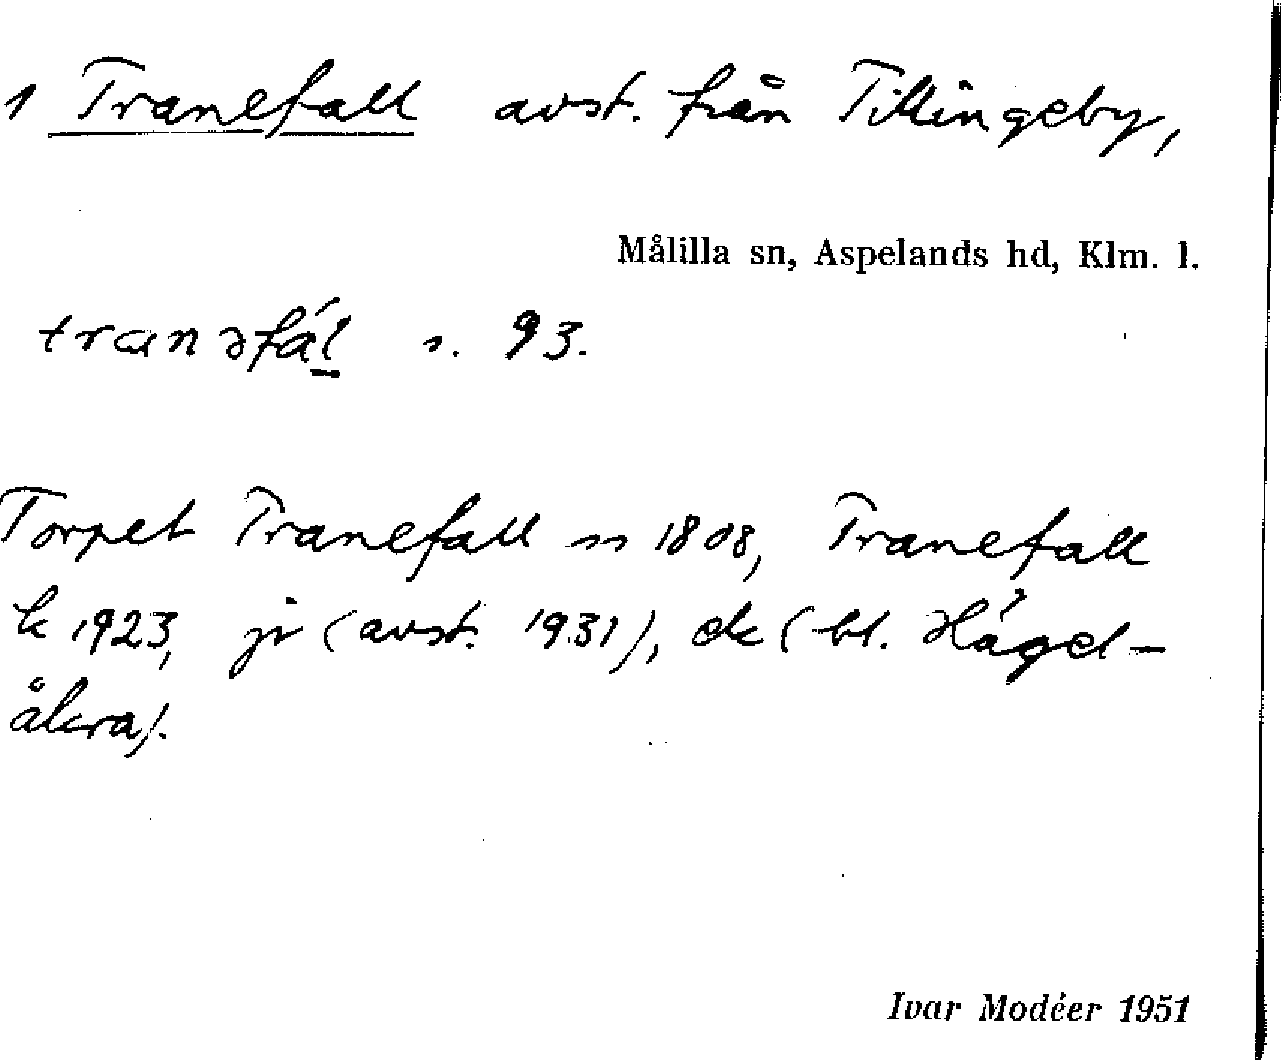 1 Tranefall avst. från Tillingeby,
Målilla sn, Aspelands hd, Klm. l.
tranəfál s. 93.
Torpet Tranefall sn 1808, Tranefall
k 1923, jr (avst. 1931), ek (bl. Hágel-
åkra).
Ivar Modéer 1951